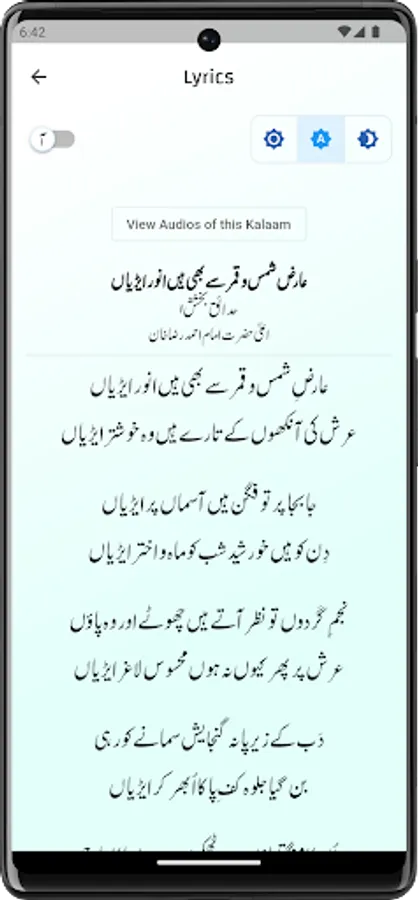 6:42
Lyrics
آ
A
View Audios of this Kalaam
عارض شمس و قمر سے بھی ہیں انور ایڑیاں
حدائق بخشش
اعلیٰ حضرت امام احمد رضا خان
عارضِ شمس و قمر سے بھی ہیں انور ایڑیاں
عرش کی آنکھوں کے تارے ہیں وہ خوشتر ایڑیاں
جابجا پرتو فگن ہیں آسماں پر ایڑیاں
دِن کو ہیں خورشید شب کو ماہ و اختر ایڑیاں
نجمِ گَردوں تو نظر آتے ہیں چھوٹے اور وہ پاؤں
عرش پر پھر کیوں نہ ہوں محسوس لاغر ایڑیاں
دَب کے زیرِ پا نہ گنجایش سمانے کو رہی
بن گیا جلوہ کفِ پا کا اُبھر کر ایڑیاں